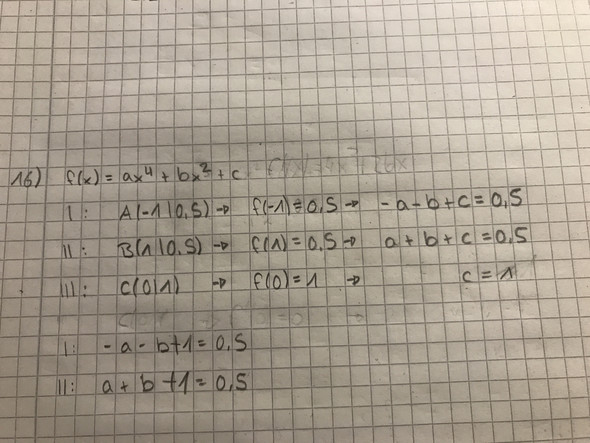 16) f(x) = ax⁴ + bx² + c
I: A(-1|0,5) → f(-1) = 0,5 → -a-b+c = 0,5
II: B(1|0,5) → f(1) = 0,5 → a + b + c = 0,5
III: C(0|1) → f(0) = 1 → c = 1
I: -a - b+1 = 0,5
II: a + b +1 = 0,5